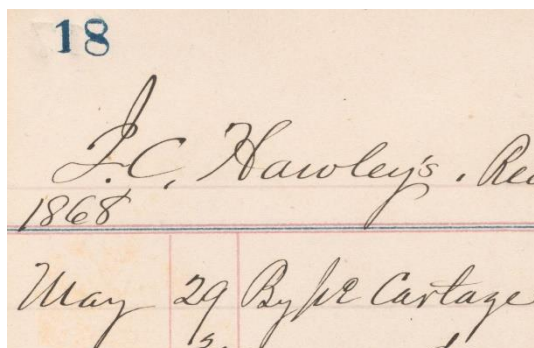 18
J.C. Hawley's.
1868
May 29 By pc Cartage